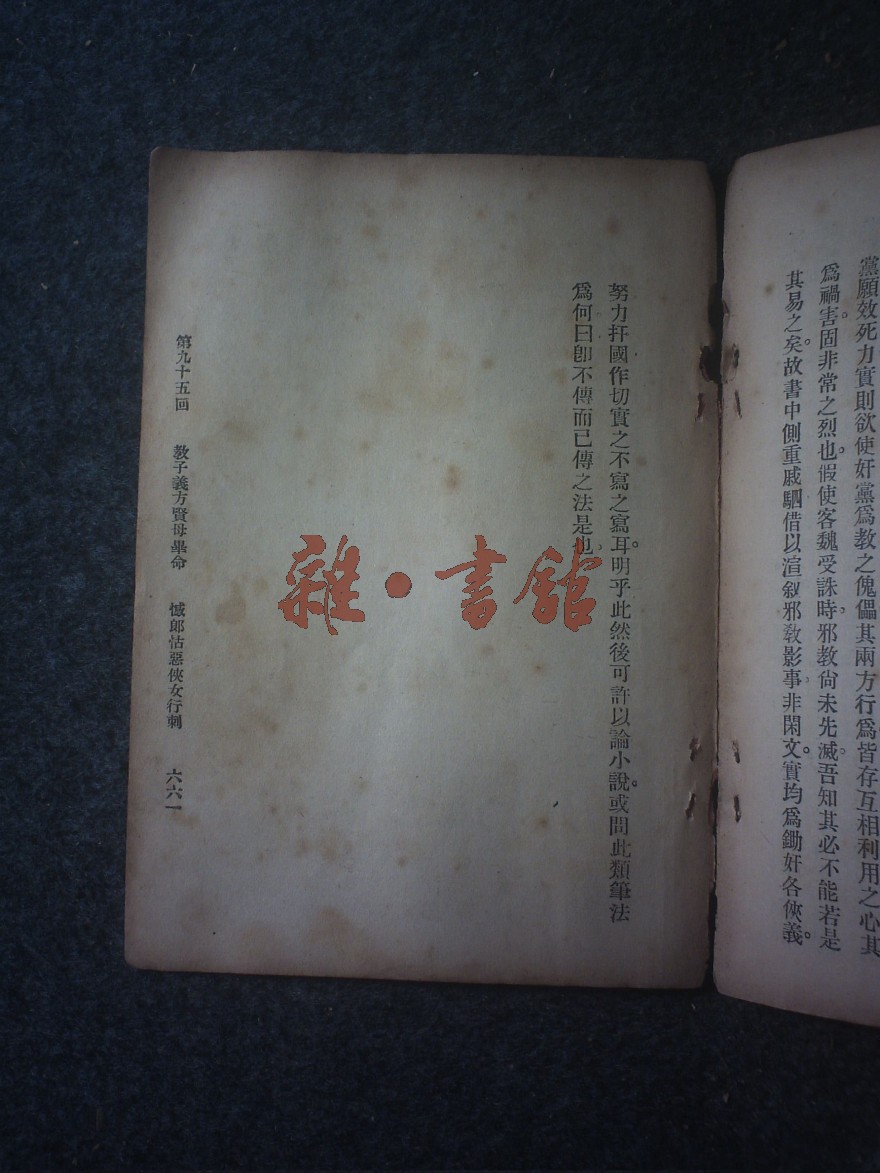 黨願效死力實則欲使奸黨爲教之傀儡其兩方行爲皆存互相利用之心其
爲禍害。固非常之烈也。假使客魏受誅時。邪教尙未先滅。吾知其必不能若是
其易之矣。故書中側重戚駟借以渲敘邪敎影事。非閑文。實均爲鋤奸各俠義。
努力扞國作切實之不寫之寫耳。明乎此然後可許以論小說。或問此類筆法
爲何曰卽不傳而已傳之法是也。
第九十五回　敎子義方賢母畢命　憾郎怙惡俠女行刺　六六一
雜·書館